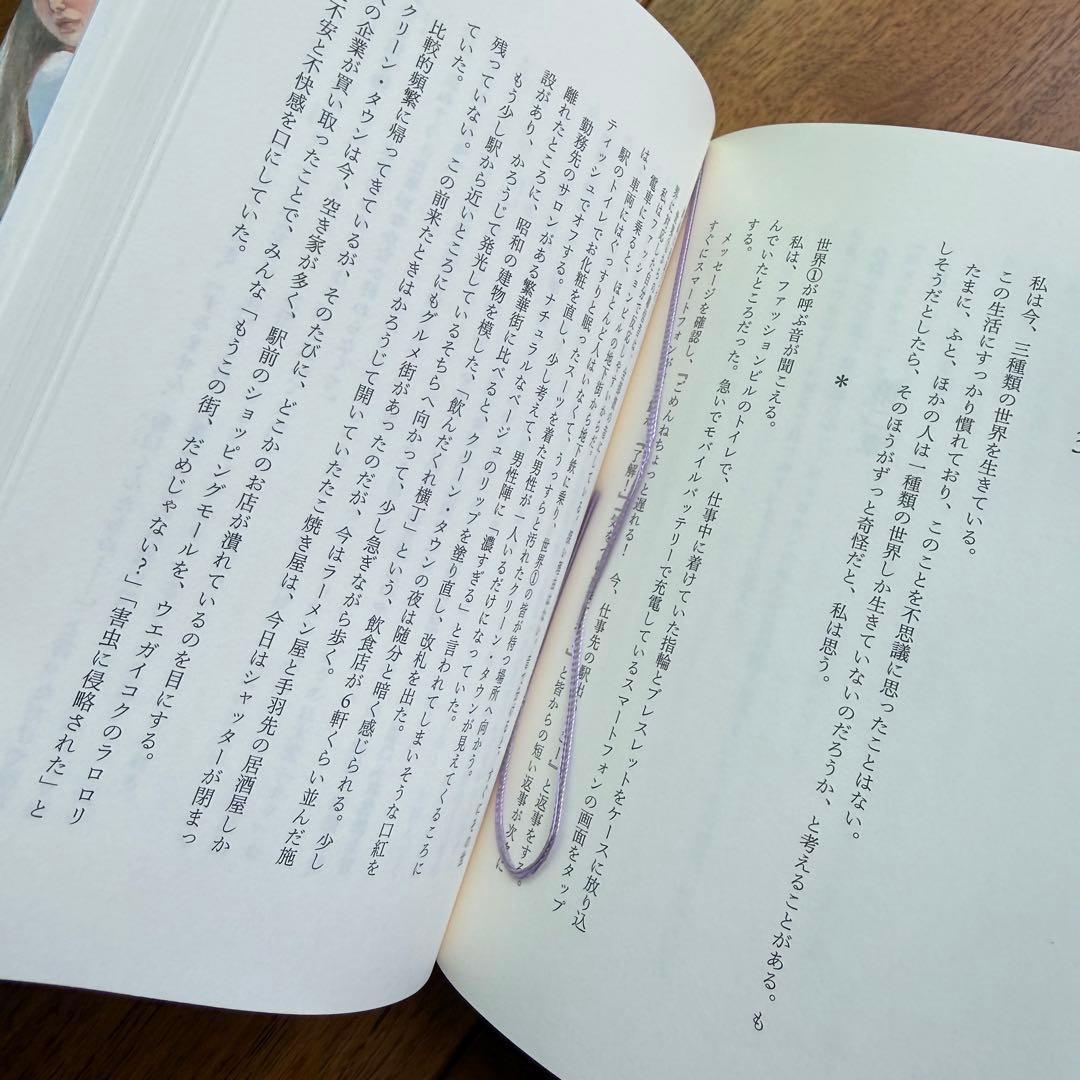 私は今、三種類の世界を生きている。
この生活にすっかり慣れており、このことを不思議に思ったことはない。
たまに、ふと、ほかの人は一種類の世界しか生きていないのだろうか、と考えることがある。も
しそうだとしたら、そのほうがずっと奇怪だと、私は思う。
*
世界①が呼ぶ音が聞こえる。
私は、ファッションビルのトイレで、仕事中に着けていた指輪とブレスレットをケースに放り込
んでいたところだった。急いでモバイルバッテリーで充電しているスマートフォンの画面をタップ
する。
メッセージを確認し、『ごめんねちょっと遅れる! 今、仕事先の駅出
すぐにスマートフォン 『了解!』 と皆からの短い返事が次
電車に乗ると、
駅のトイレでお化粧を直し、少し考えて、男性陣に「濃すぎる」と言われてしまいそうな口紅を
ティッシュでオフする。ナチュラルなベージュのリップを塗り直し、改札を出た。
勤務先のサロンがある繁華街に比べると、クリーン・タウンの夜は随分と暗く感じられる。少し
離れたところに、昭和の建物を模した、「飲んだくれ横丁」という、飲食店が6軒くらい並んだ施
設があり、かろうじて発光しているそちらへ向かって、少し急ぎながら歩く。
もう少し駅から近いところにもグルメ街があったのだが、今はラーメン屋と手羽先の居酒屋しか
残っていない。この前来たときはかろうじて開いていたたこ焼き屋は、今日はシャッターが閉まっ
ていた。
比較的頻繁に帰ってきているが、そのたびに、どこかのお店が潰れているのを目にする。
クリーン・タウンは今、空き家が多く、駅前のショッピングモールを、ウエガイコクのラロロリ
の企業が買い取ったことで、みんな「もうこの街、だめじゃない?」「害虫に侵略された」と
不安と不快感を口にしていた。